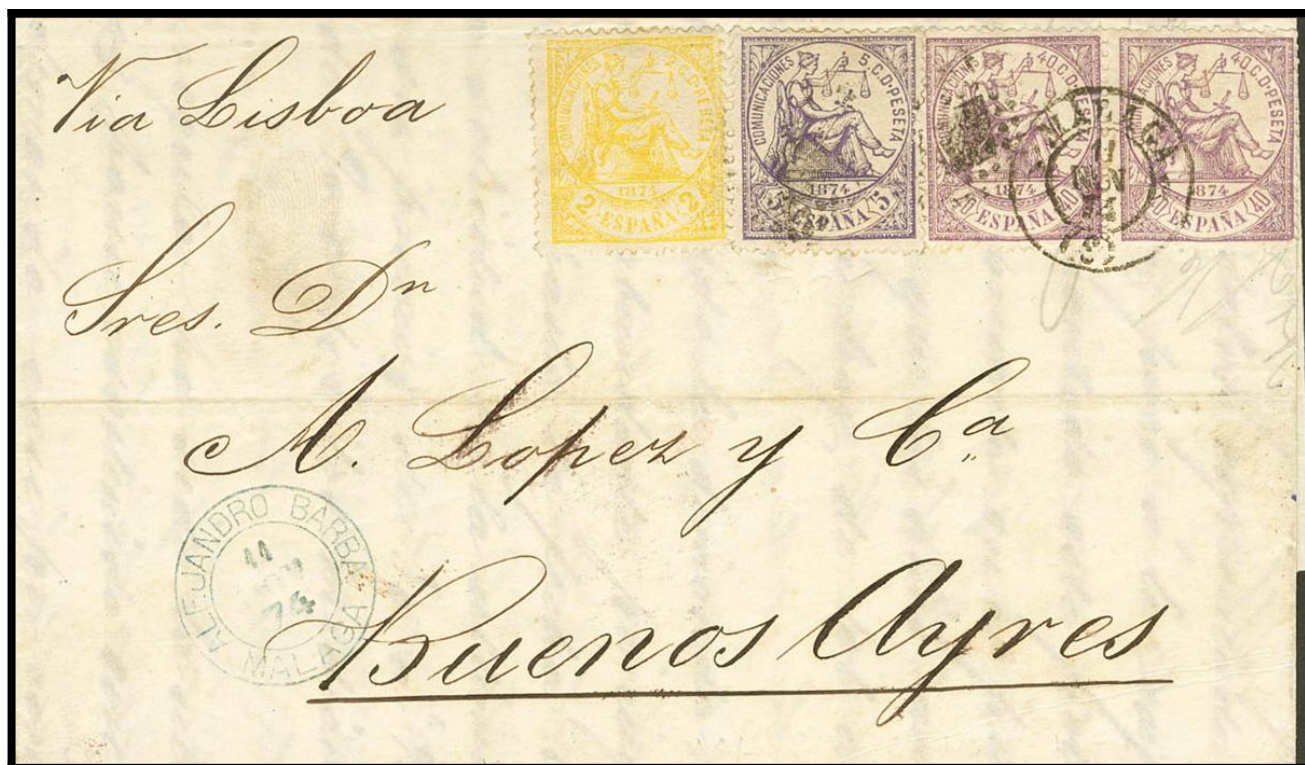 Via Lisboa
COMUNICACIONES 2 C. D. PESETA
1874
2 ESPAÑA 2
COMUNICACIONES 5 C. D. PESETA
1874
5 ESPAÑA 5
COMUNICACIONES 40 C. D. PESETA
1874
40 ESPAÑA 40
COMUNICACIONES 40 C. D. PESETA
1874
40 ESPAÑA 40
MALAGA
11
74
Sres. Dn
A. Lopez y Ca
ALEJANDRO BARBA
11
74
MALAGA
Buenos Ayres